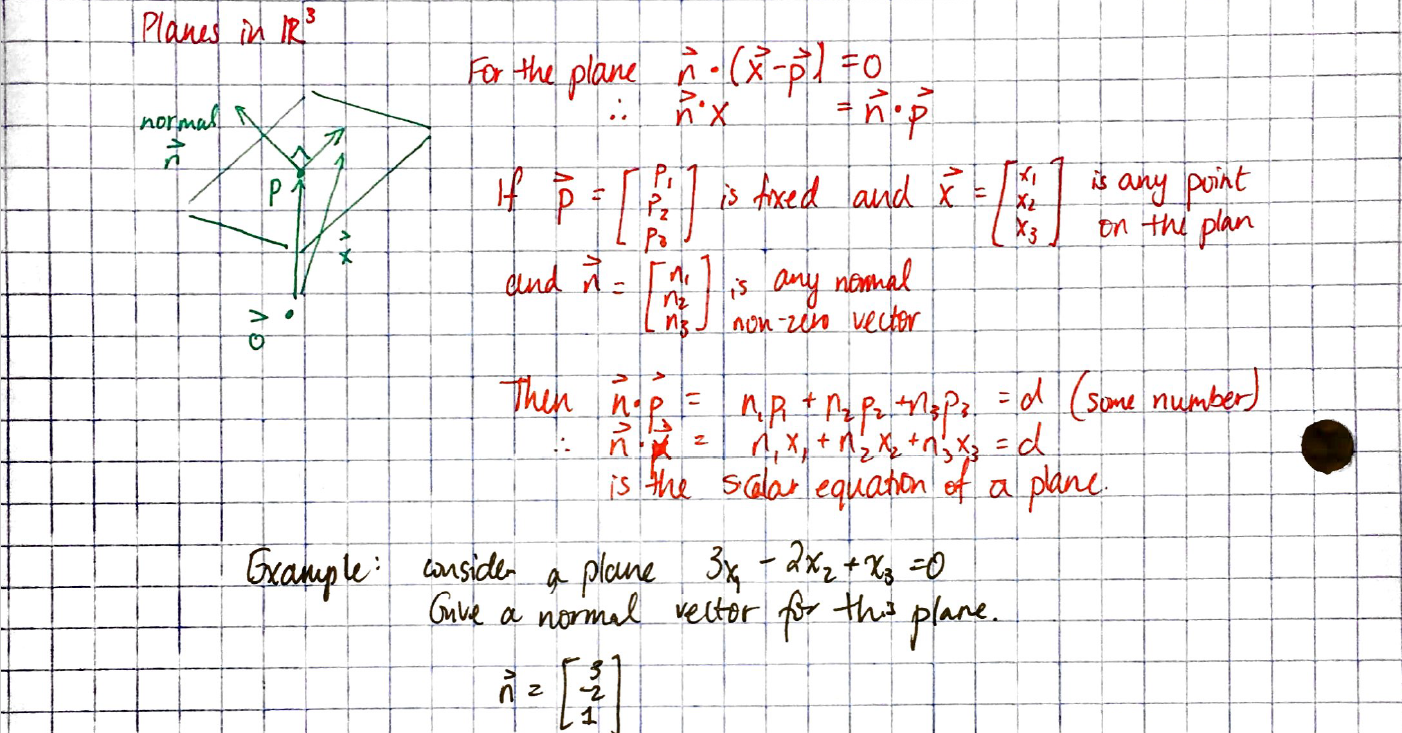 Planes in ℝ³
For the plane n⃗ · (x⃗ - p⃗) = 0
∴ n⃗ · x = n⃗ · p⃗
normal
n⃗
P
x⃗
0⃗
If p⃗ = [p₁ p₂ p₃] is fixed and x⃗ = [x₁ x₂ x₃] is any point
on the plan
and n⃗ = [n₁ n₂ n₃] is any normal
non-zero vector
Then n⃗ · p⃗ = n₁p₁ + n₂p₂ + n₃p₃ = d (some number)
∴ n⃗ · x⃗ = n₁x₁ + n₂x₂ + n₃x₃ = d
is the scalar equation of a plane.
Example: consider a plane 3x₁ - 2x₂ + x₃ = 0
Give a normal vector for this plane.
n⃗ = [3 -2 1]